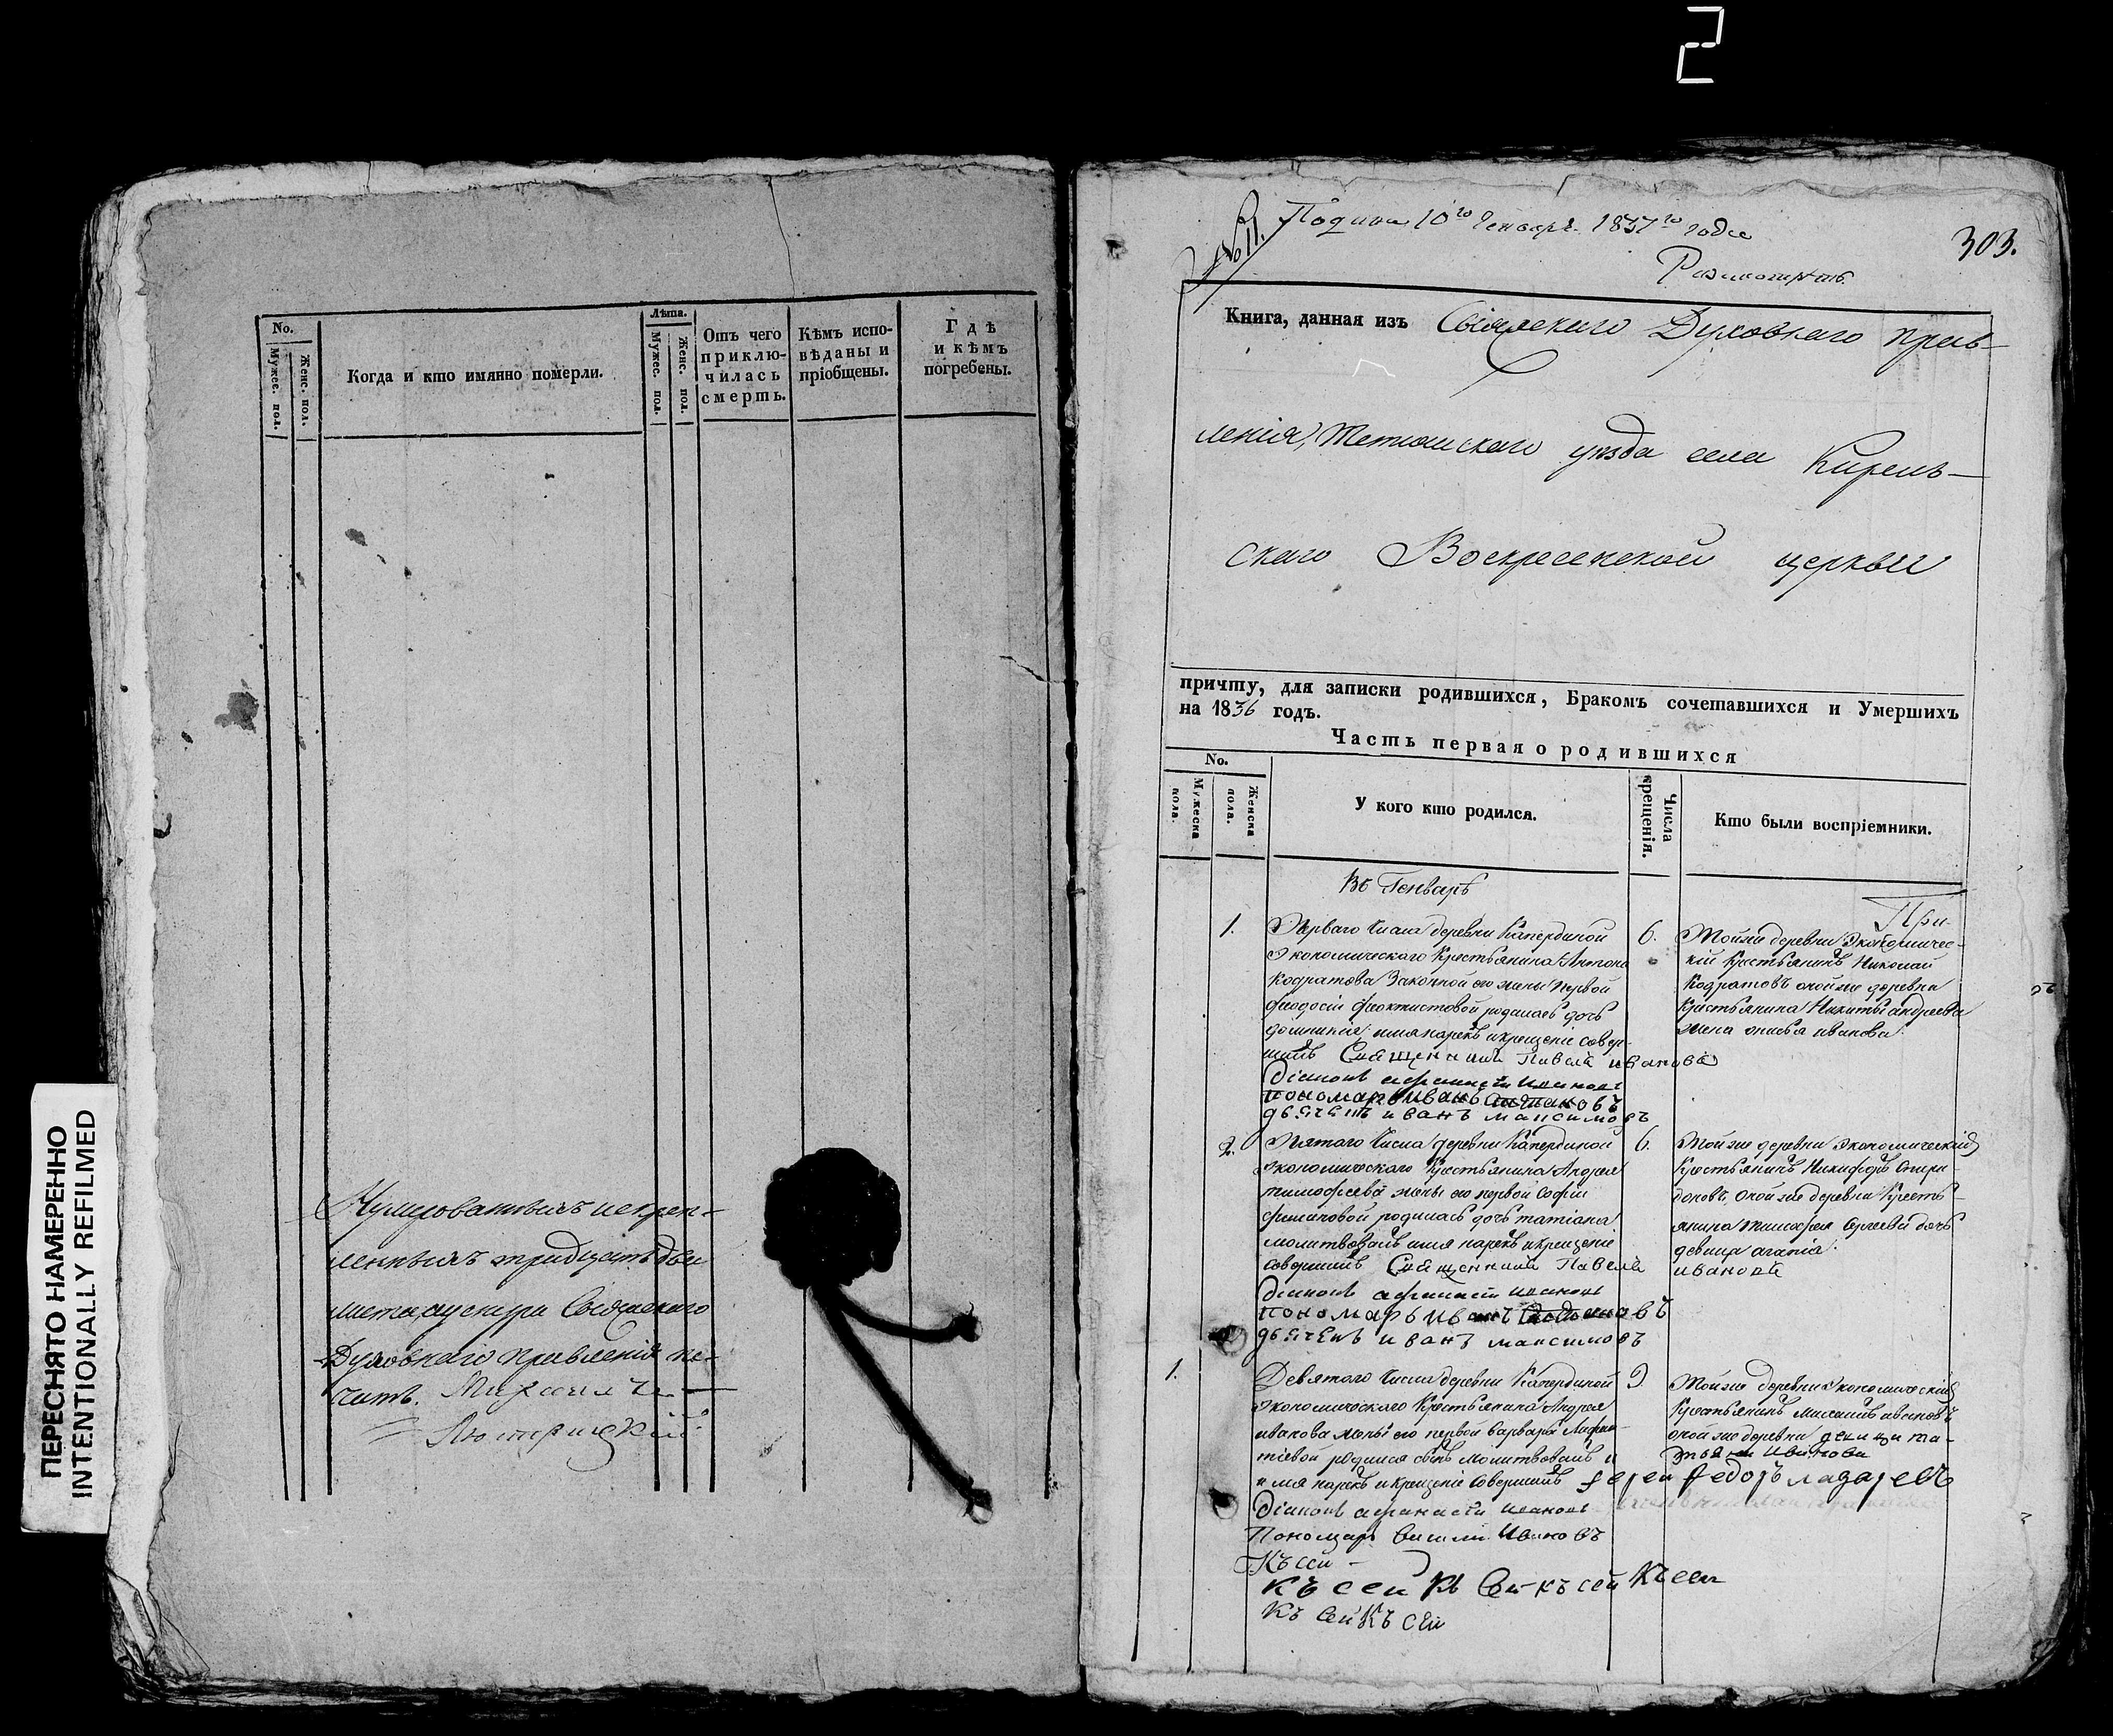 2
ПЕРЕСНЯТО НАМЕРЕННО
INTENTIONALLY REFILMED
No.
Мужес. пол.
Женс. пол.
Когда и кто имянно померли.
Лѣта.
Мужес. пол.
Женс. пол.
Отъ чего
приклю-
чилась
смерть.
Кѣмъ испо-
вѣданы и
пріобщены.
Гдѣ
и кѣмъ
погребены.
тридцать два
листа, Свіяжскаго
Духовнаго правленія пе-
чать.
№ 11.
10го Генваря 1837го года
303.
Книга, данная изъ Свіяжскаго Духовнаго прав-
ленія, Тетюшскаго уѣзда села Кирель-
скаго Воскресенской церкви
причту, для записки родившихся, Бракомъ сочетавшихся и Умершихъ
на 1836 годъ.
Часть первая о родившихся
No.
Мужеска пола.
Женска пола.
У кого кто родился.
Числа крещенія.
Кто были воспріемники.
Въ Генварѣ
При
1.
Перваго числа деревни Капердиной
экономическаго крестьянина Антона
Кодратова законной его жены первой
феодосіи феоктистовой родилась дочь
домникія имя нарекъ и крещеніе совер-
шилъ Священникъ Павелъ ивановъ
діаконъ афанасій ивановъ
пономарь иванъ
дьячекъ иванъ максимовъ
6.
Тойже деревни экономичес-
кій крестьянинъ Николай
Кодратовъ оной же деревни
крестьянина Никиты андреева
жена иванова.
2.
Пятаго числа деревни Капердиной
экономическаго крестьянина Андрея
тимофеева жены его первой софіи
филиповой родилась дочь татіана
молитвовалъ имя нарекъ и крещеніе
совершилъ Священникъ Павелъ
ивановъ
діаконъ афанасій ивановъ
пономарь иванъ
дьячекъ иванъ максимовъ
6.
Тойже деревни экономическій
крестьянинъ Никифоръ Спири-
доновъ, оной же деревни кресть-
янина дочь
девица агапія.
1.
Девятаго числа деревни Капердиной
экономическаго крестьянина Андрея
иванова жены его первой варвары
родился сынъ молитвовалъ и
имя нарекъ и крещеніе совершилъ Іерей федоръ лазаревъ
діаконъ афанасій ивановъ
Пономарь Ивановъ
9
Тойже деревни экономическій
крестьянинъ михаилъ ивановъ
оной же деревни девица та-
тьяна Иванова
Къ сей
къ сей къ сей къ сей къ сей
къ сей къ сей